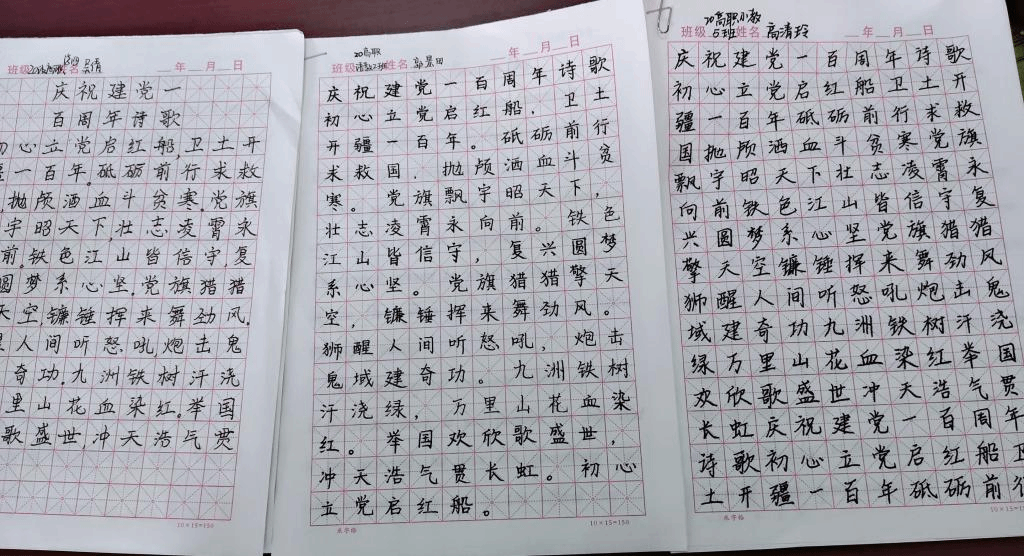 班级 姓名 年 月 日
庆祝建党一
百周年诗歌
心立党启红船,卫土开
一百年。砥砺前行求救
抛颅洒血斗贫寒。党旗
宇昭天下,壮志凌霄永
前。铁色江山皆信守复
圆梦系心坚。党旗猎猎
天空,镰锤挥来舞劲风。
人间听怒吼炮击鬼
奇功。九洲铁树汗浇
里山花血染红。举国
歌盛世,冲天浩气贯
10×15=150
20高职
班级 姓名 年 月 日
庆祝建党一百周年诗歌
初心立党启红船,卫土
开疆一百年。砥砺前行
求救国,抛颅洒血斗贫
寒。党旗飘宇昭天下,
壮志凌霄永向前。铁色
江山皆信守,复兴圆梦
系心坚。党旗猎猎擎天
空,镰锤挥来舞劲风。
狮醒人间听怒吼,炮击
鬼域建奇功。九洲铁树
汗浇绿,万里山花血染
红。举国欢欣歌盛世,
冲天浩气贯长虹。初心
立党启红船。
米字格 10×15=150
20高职小教
班级 5班 姓名 高清玲 年 月 日
庆祝建党一百周年诗歌
初心立党启红船卫土开
疆一百年砥砺前行求救
国抛颅洒血斗贫寒党旗
飘宇昭天下壮志凌霄永
向前铁色江山皆信守复
兴圆梦系心坚党旗猎猎
擎天空镰锤挥来舞劲风
狮醒人间听怒吼炮击鬼
域建奇功九洲铁树汗浇
绿万里山花血染红举国
欢欣歌盛世冲天浩气贯
长虹庆祝建党一百周年
诗歌初心立党启红船卫
土开疆一百年砥砺前行
米字格